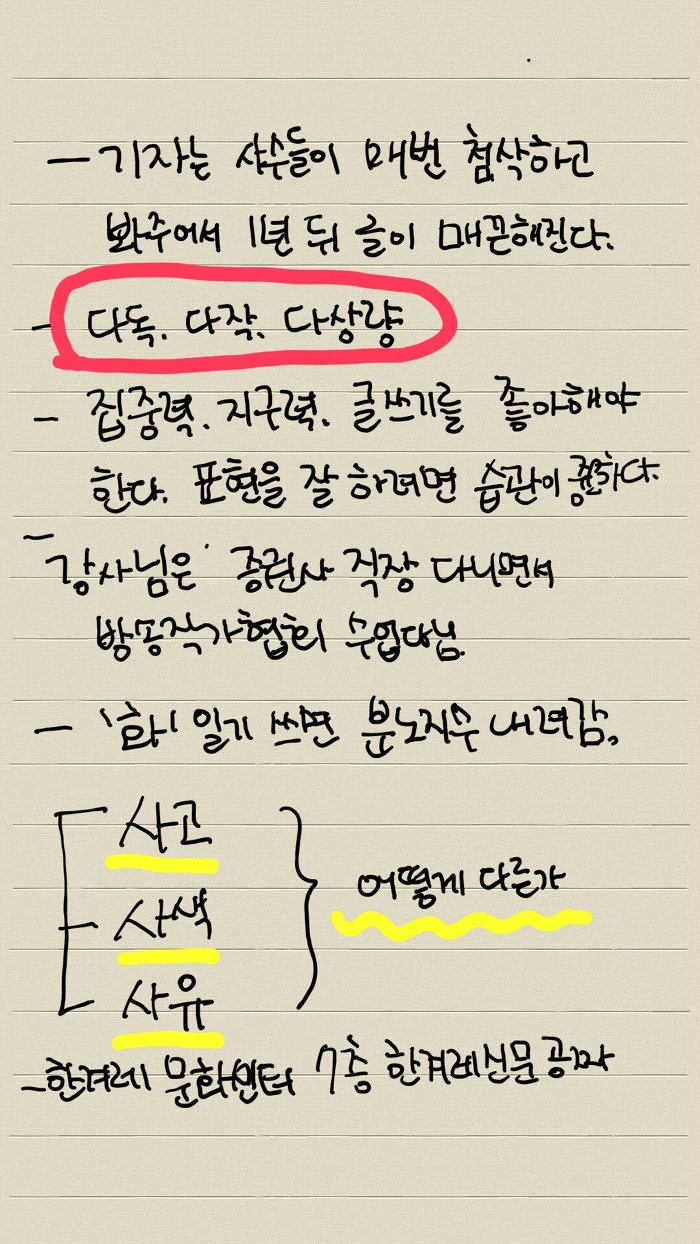 - 기자는 사수들이 매번 첨삭하고
봐주어서 1년 뒤 글이 매끈해진다.
- 다독. 다작. 다상량
- 집중력. 지구력. 글쓰기를 좋아해야
한다. 표현을 잘 하려면 습관이 중요하다.
- 강사님은 증권사 직장 다니면서
방송작가협회 수업다님.
- '화' 일기 쓰면 분노지수 내려감.
사고
사색
사유
어떻게 다른가
- 한겨레 문화센터 7층 한겨레신문 공짜